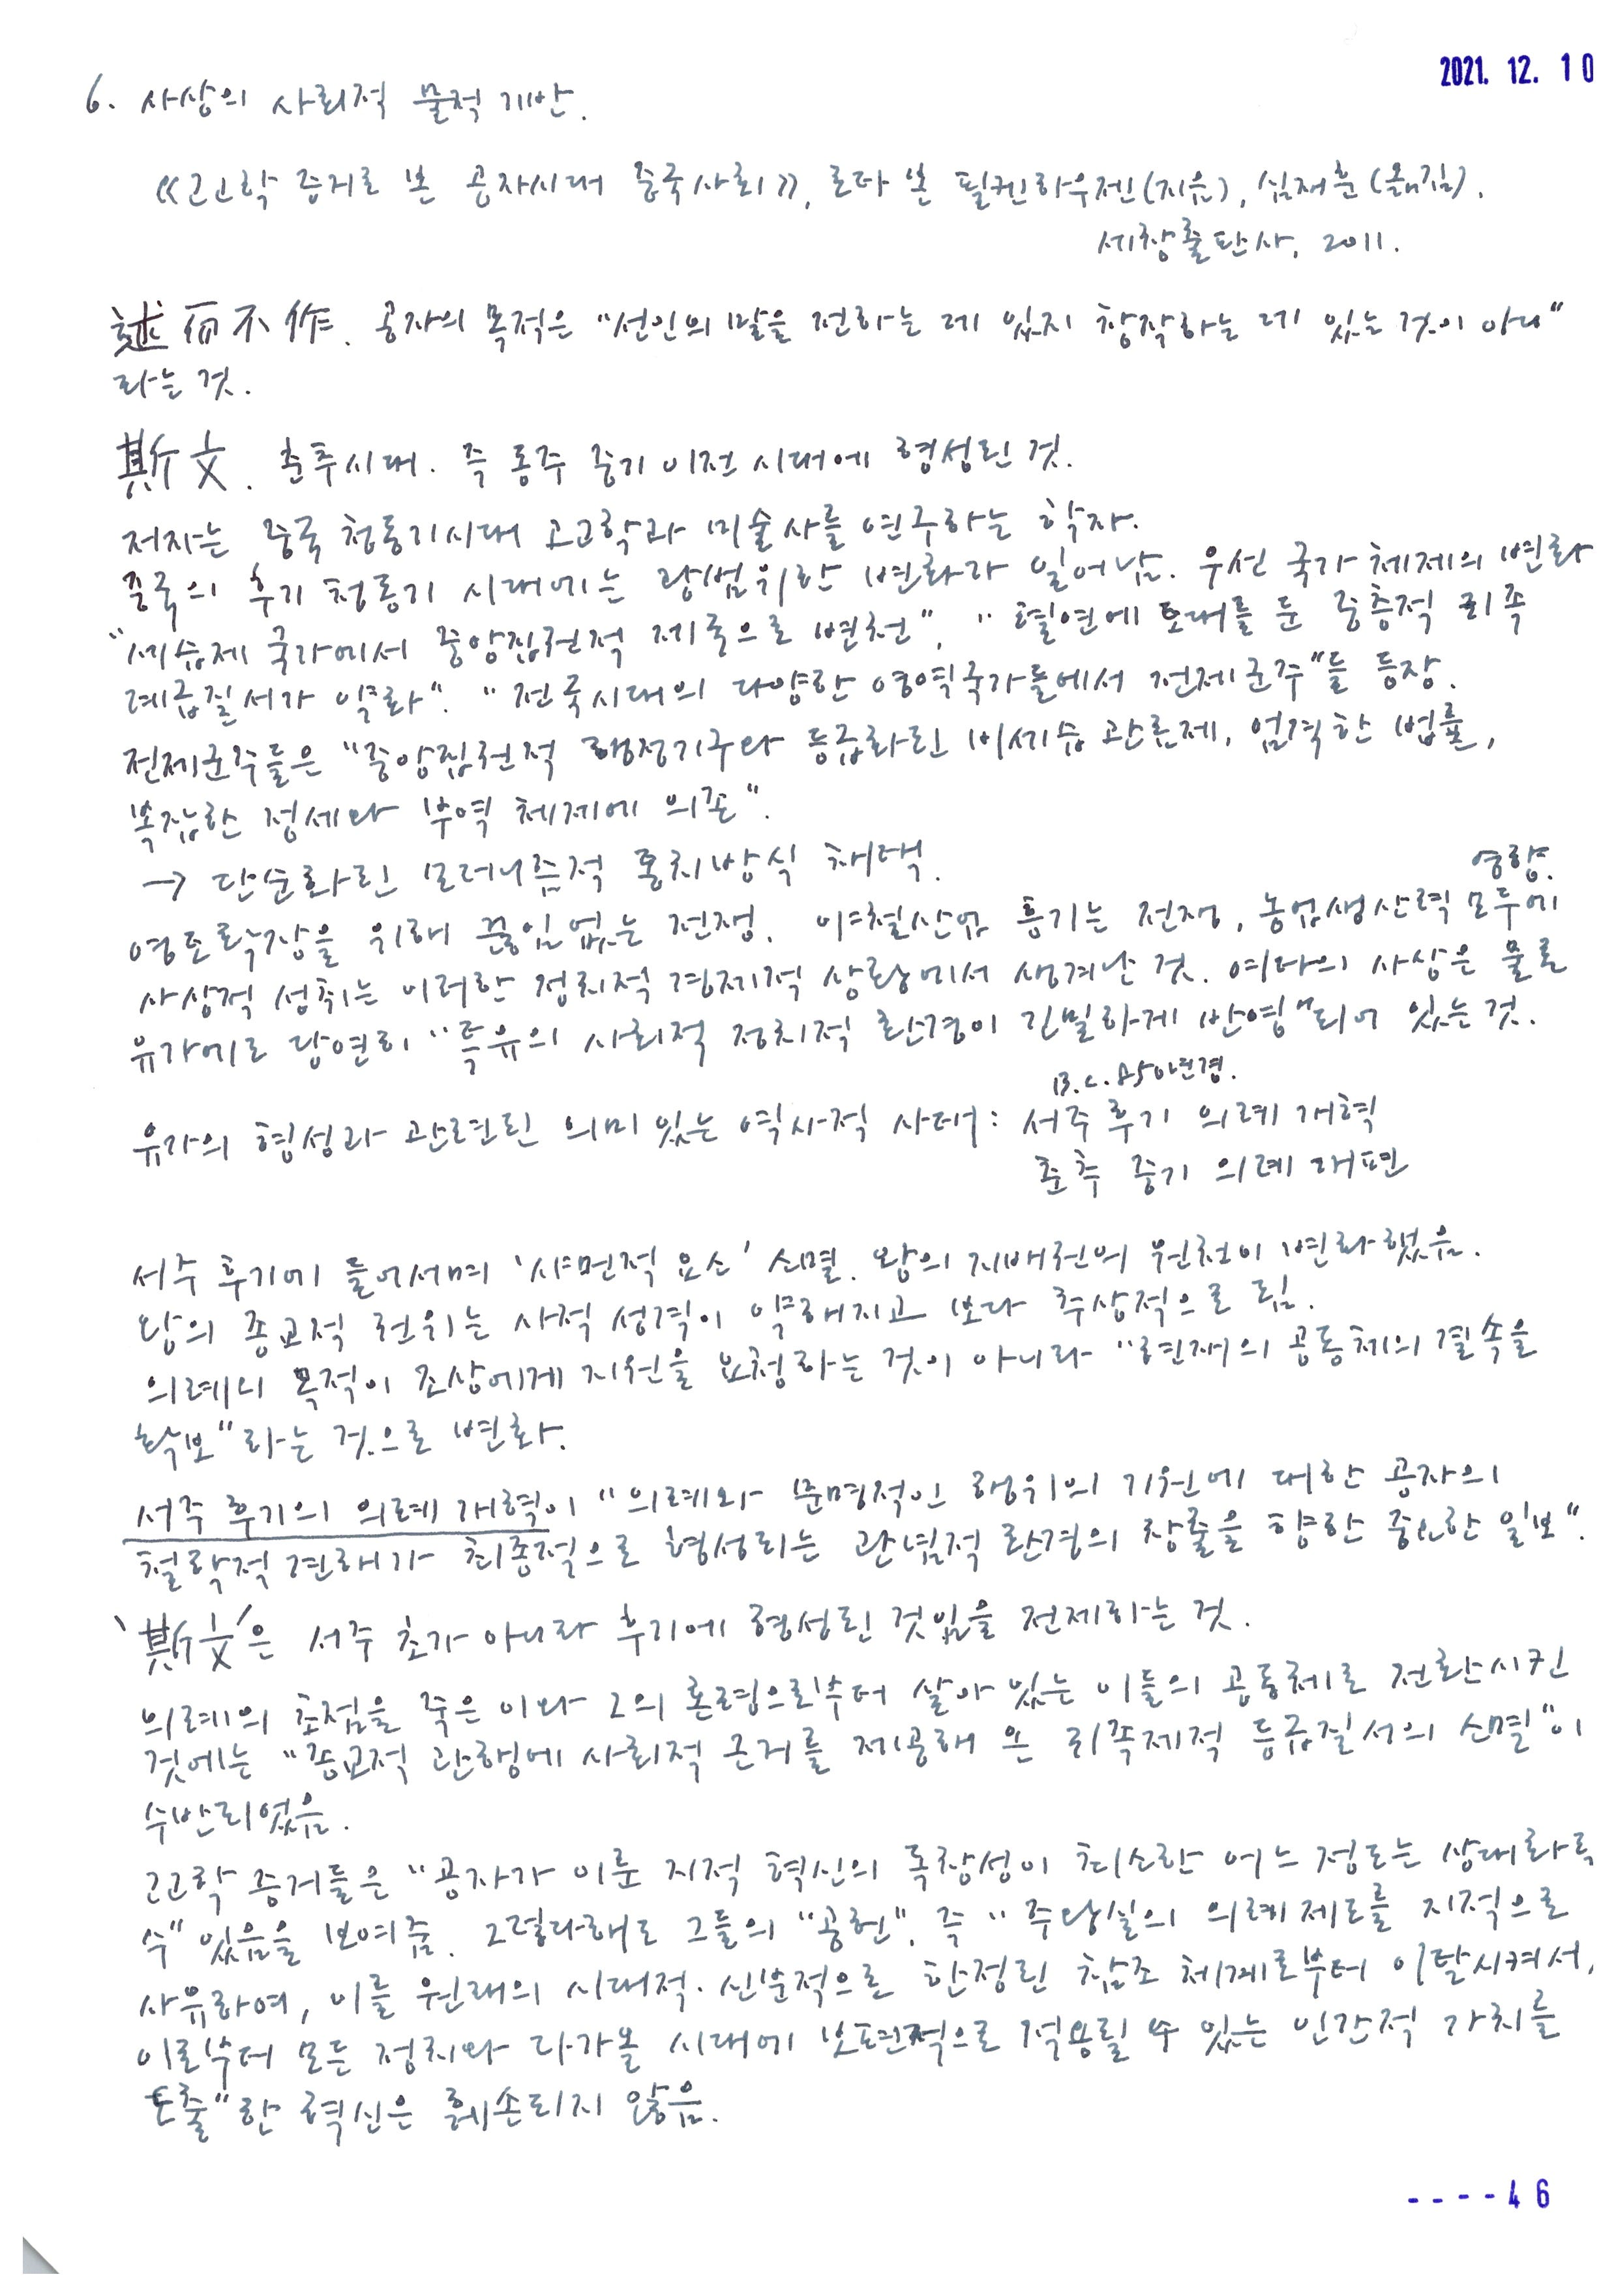 2021. 12. 10
6. 사상의 사회적 물적 기반.
《고고학 증거로 본 공자시대 중국사회》, 로타 본 팔켄하우젠(지음), 심재훈(옮김).
세창출판사, 2011.
述而不作. 공자의 목적은 "선인의 말을 전하는 데 있지 창작하는 데 있는 것이 아니"
라는 것.
斯文. 춘추시대. 즉 동주 중기 이전 시대에 형성된 것.
저자는 중국 청동기시대 고고학과 미술사를 연구하는 학자.
중국의 후기 청동기 시대에는 광범위한 변화가 일어남. 우선 국가 체제의 변화
"세습제 국가에서 중앙집권적 제국으로 변천", "혈연에 토대를 둔 중층적 귀족
계급질서가 약화". "전국시대의 다양한 영역국가들에서 전제군주"들 등장.
전제군주들은 "중앙집권적 행정기구와 등급화된 비세습 관료제, 엄격한 법률,
복잡한 징세와 부역 체제에 의존".
→ 단순화된 모더니즘적 통치방식 채택.
영향.
영토확장을 위해 끊임없는 전쟁. 야철산업 흥기는 전쟁, 농업생산력 모두에
사상적 성취는 이러한 정치적 경제적 상황에서 생겨난 것. 여타의 사상은 물론
유가에도 당연히 "특유의 사회적 정치적 환경이 긴밀하게 반영"되어 있는 것.
B.C. 850년경.
유가의 형성과 관련된 의미 있는 역사적 사태: 서주 후기 의례 개혁
춘추 중기 의례 재편
서주 후기에 들어서며 '샤먼적 요소' 소멸. 왕의 지배권의 원천이 변화했음.
왕의 종교적 권위는 사적 성격이 약해지고 보다 추상적으로 됨.
의례의 목적이 조상에게 지원을 요청하는 것이 아니라 "현재의 공동체의 결속을
확보"라는 것으로 변화.
서주 후기의 의례 개혁이 "의례와 문명적인 행위의 기원에 대한 공자의
철학적 견해가 최종적으로 형성되는 관념적 환경의 창출을 향한 중요한 일보".
'斯文'은 서주 초가 아니라 후기에 형성된 것임을 전제하는 것.
의례의 초점을 죽은 이와 그의 혼령으로부터 살아 있는 이들의 공동체로 전환시킨
것에는 "종교적 관행에 사회적 근거를 제공해 온 귀족제적 등급질서의 소멸"이
수반되었음.
고고학 증거들은 "공자가 이룬 지적 혁신의 독창성이 최소한 어느 정도는 상대화될
수" 있음을 보여줌. 그렇다해도 그들의 "공헌", 즉 "주 왕실의 의례 제도를 지적으로
사유하여, 이를 원래의 시대적·신분적으로 한정된 참조 체계로부터 이탈시켜서,
이로부터 모든 정치와 다가올 시대에 보편적으로 적용될 수 있는 인간적 가치를
도출"한 혁신은 훼손되지 않음.
----46